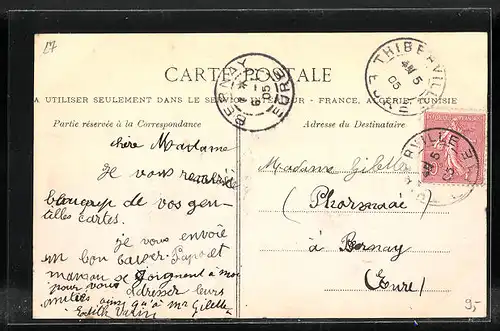 27
CARTE POSTALE
A UTILISER SEULEMENT DANS LE SERVICE - FRANCE, ALGÉRIE, TUNISIE
Partie réservée à la Correspondance
Adresse du Destinataire
BERNAY
EURE
05
THIBERVILLE
EURE
5
05
THIBERVILLE
chère Madame
Je vous
beaucoup de vos gen-
tilles cartes.
je vous envoie
un bon baiser. Papa et
maman se joignent à moi
pour vous adresser leurs
amitiés ainsi qu'à Mr Gilette
Edith
Madame Gilette
(Pharmacie)
à Bernay
(Eure)
9,-